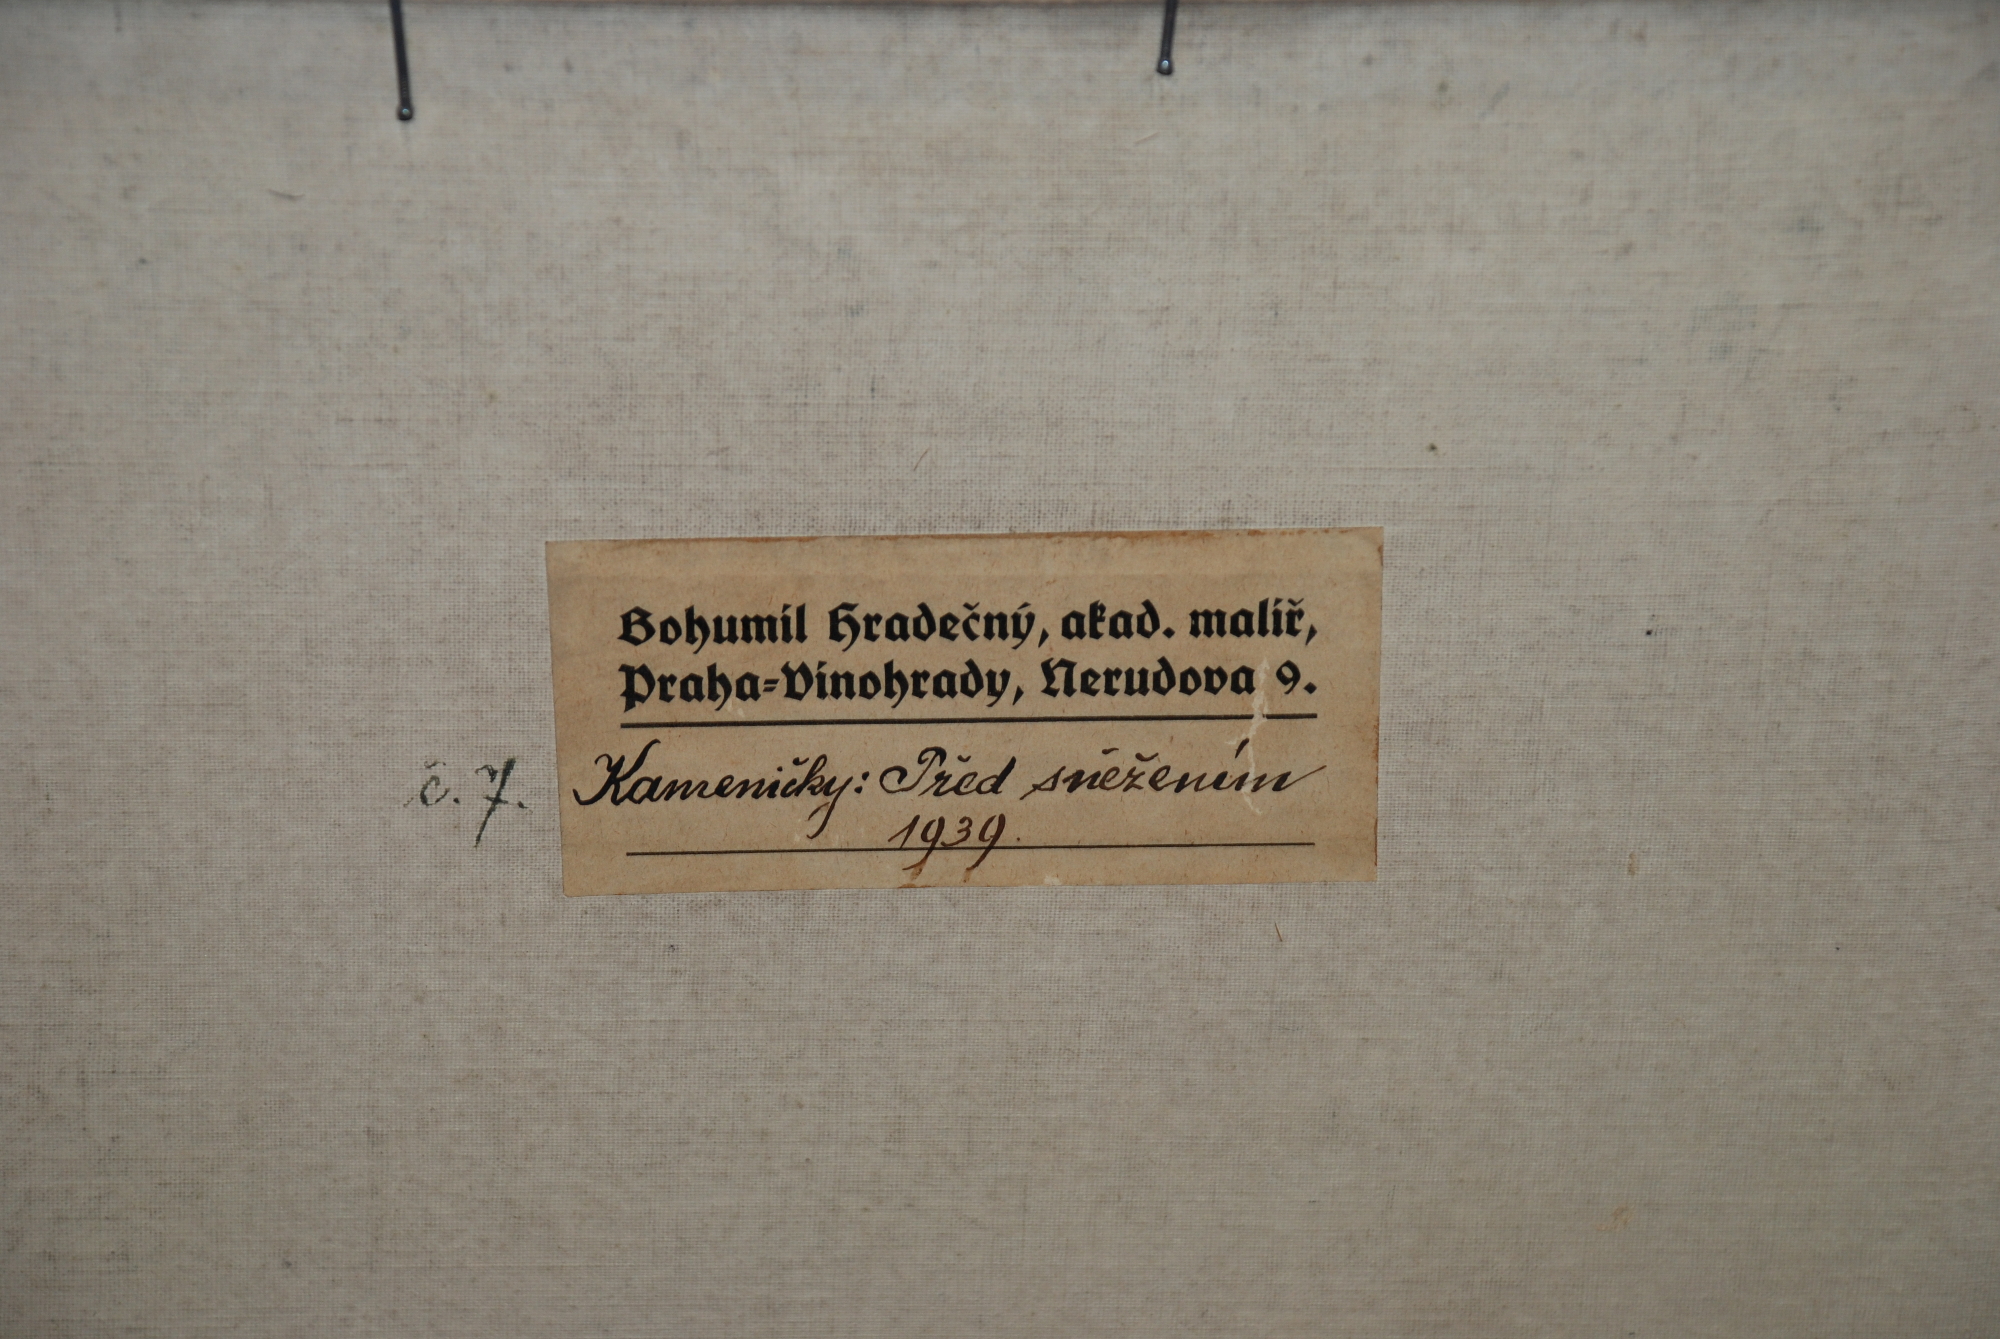 Bohumil Hradečný, akad. malíř,
Praha-Vinohrady, Nerudova 9.
č. 7.
Kameničky: Před sněžením
1939.